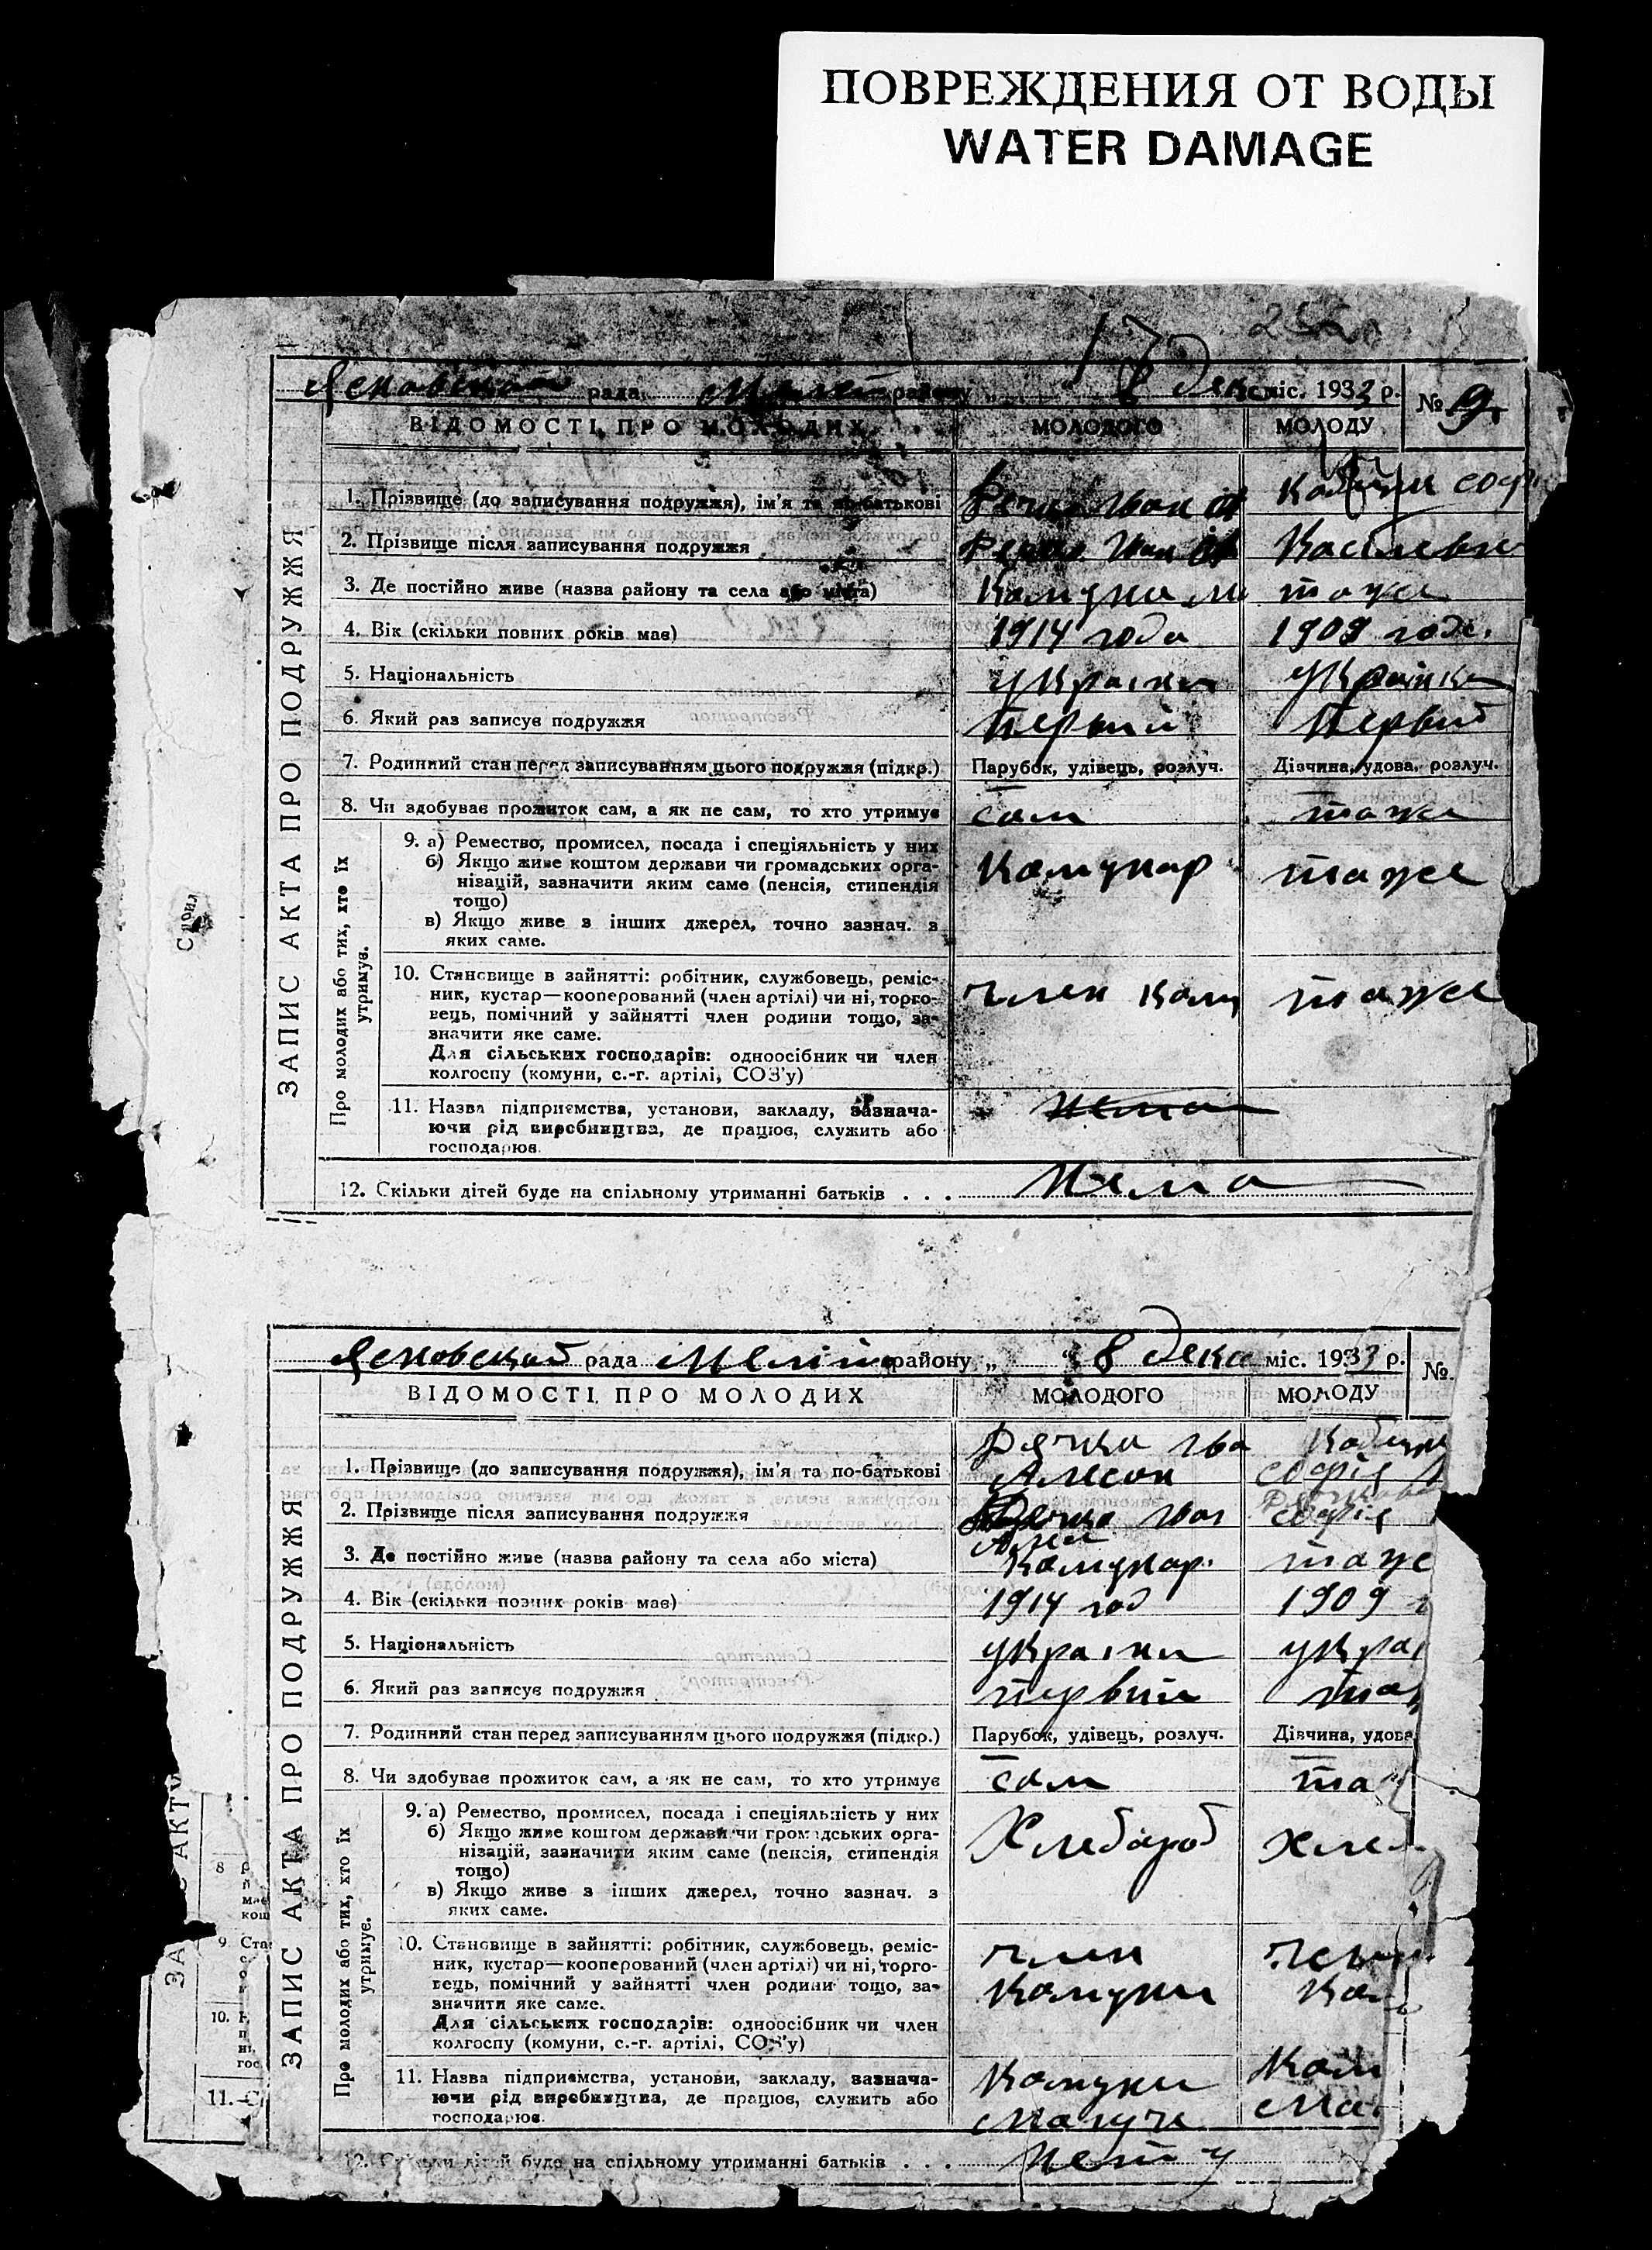 ПОВРЕЖДЕНИЯ ОТ ВОДЫ
WATER DAMAGE
рада району „ “ 8 дек міс. 1933 р. № 9
ВІДОМОСТІ ПРО МОЛОДИХ МОЛОДОГО МОЛОДУ
ЗАПИС АКТА ПРО ПОДРУЖЖЯ
1. Прізвище (до записування подружжя), ім'я та по-батькові Иван
2. Прізвище після записування подружжя Иван
3. Де постійно живе (назва району та села або міста) Комуна тоже
4. Вік (скільки повних років має) 1914 года 1909 годе.
5. Національність украінки украінка
6. Який раз записує подружжя первий первий
7. Родинний стан перед записуванням цього подружжя (підкр.) Парубок, удівець, розлуч. Дівчина, удова, розлуч.
8. Чи здобуває прожиток сам, а як не сам, то хто утримує сам тоже
Про молодих або тих, хто їх утримує.
9. а) Ремество, промисел, посада і спеціяльність у них
б) Якщо живе коштом держави чи громадських орга-
нізацій, зазначити яким саме (пенсія, стипендія
тощо)
в) Якщо живе з інших джерел, точно зазнач. з
яких саме.
Комунар тоже
10. Становище в зайнятті: робітник, службовець, реміс-
ник, кустар—кооперований (член артілі) чи ні, торго-
вець, помічний у зайнятті член родини тощо, за-
значити яке саме.
Для сільських господарів: одноосібник чи член
колгоспу (комуни, с.-г. артілі, СОЗ'у)
член кому тоже
11. Назва підприємства, установи, закладу, зазнача-
ючи рід виробництва, де працює, служить або
господарює.
Нема
12. Скільки дітей буде на спільному утриманні батьків . . . Нема
рада району „ “ 8 дека міс. 1933 р. №
ВІДОМОСТІ ПРО МОЛОДИХ МОЛОДОГО МОЛОДУ
ЗАПИС АКТА ПРО ПОДРУЖЖЯ
1. Прізвище (до записування подружжя), ім'я та по-батькові Речка Ива
софія
2. Прізвище після записування подружжя Речка Иван софія
3. Де постійно живе (назва району та села або міста) Комунар. тоже
4. Вік (скільки повних років має) 1914 год 1909
5. Національність украіни украі
6. Який раз записує подружжя первий то
7. Родинний стан перед записуванням цього подружжя (підкр.) Парубок, удівець, розлуч. Дівчина, удова
8. Чи здобуває прожиток сам, а як не сам, то хто утримує сам то
Про молодих або тих, хто їх утримує.
9. а) Ремество, промисел, посада і спеціяльність у них
б) Якщо живе коштом держави чи громадських орга-
нізацій, зазначити яким саме (пенсія, стипендія
тощо)
в) Якщо живе з інших джерел, точно зазнач. з
яких саме.
Хлебороб хле
10. Становище в зайнятті: робітник, службовець, реміс-
ник, кустар—кооперований (член артілі) чи ні, торго-
вець, помічний у зайнятті член родини тощо, за-
значити яке саме.
Для сільських господарів: одноосібник чи член
колгоспу (комуни, с.-г. артілі, СОЗ'у)
член
комуни ком
11. Назва підприємства, установи, закладу, зазнача-
ючи рід виробництва, де працює, служить або
господарює.
Комуни Ком
12. Скільки дітей буде на спільному утриманні батьків . . . Нету